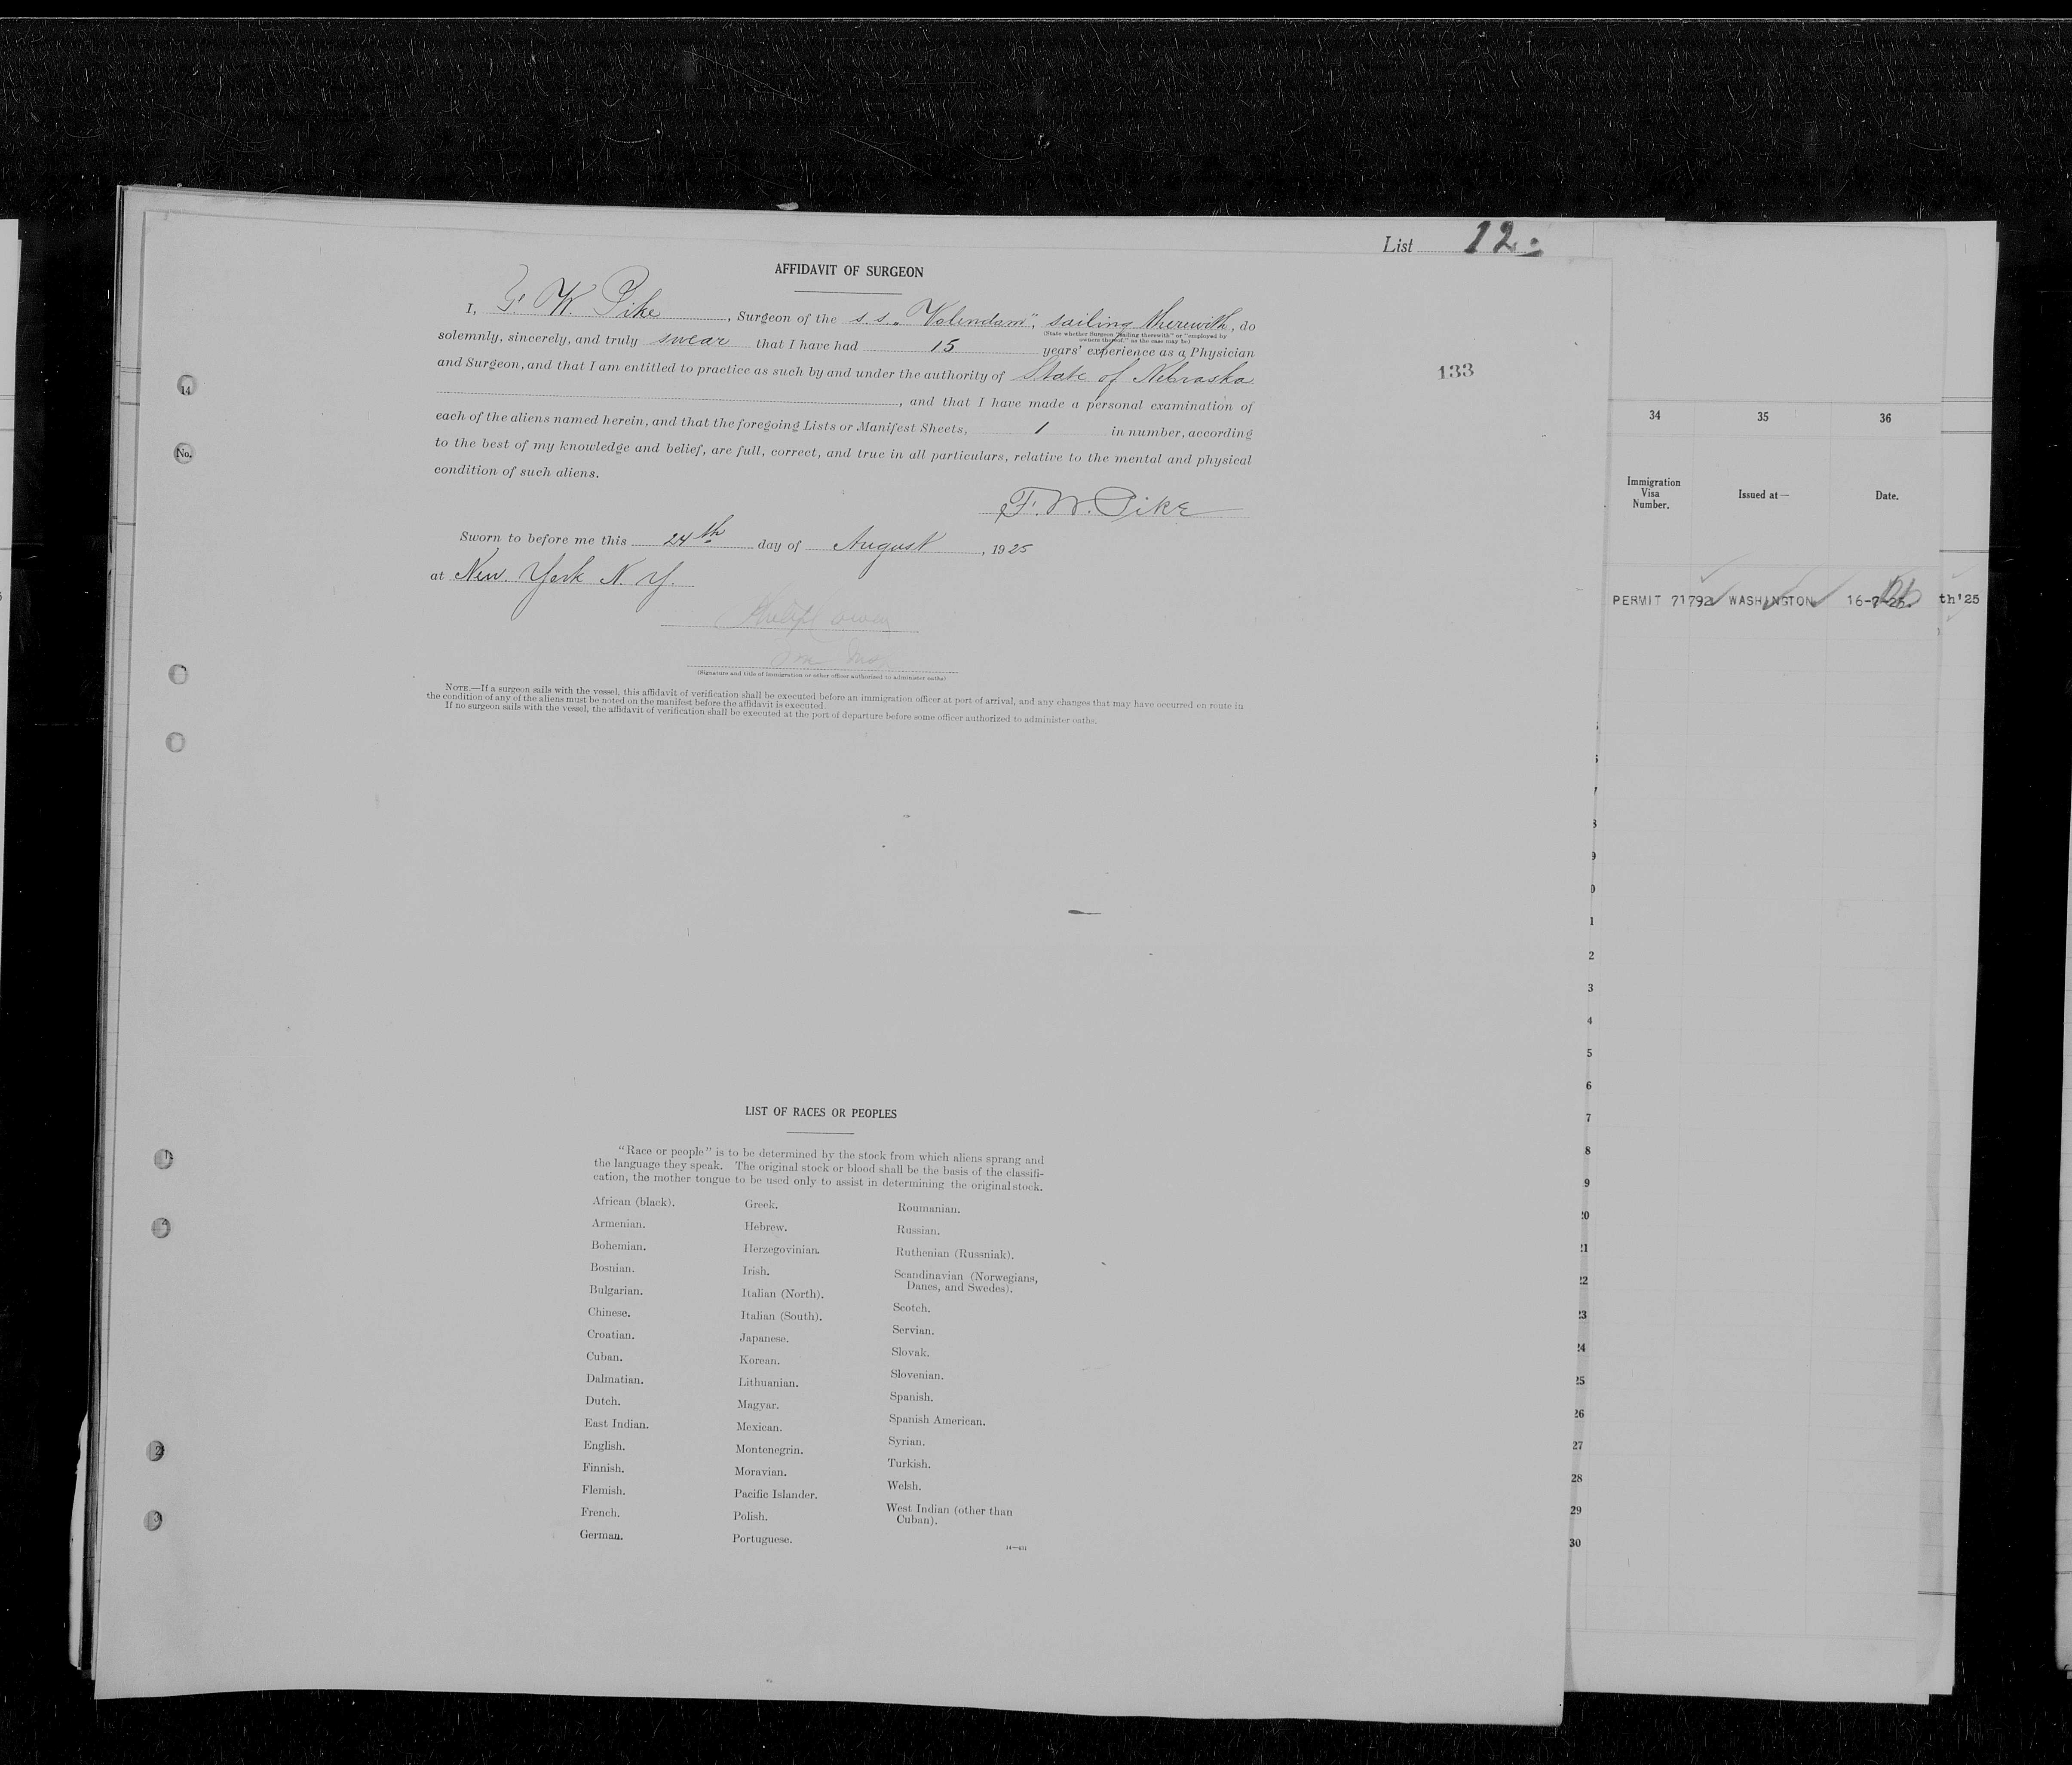 List 12.
AFFIDAVIT OF SURGEON
I, F. W. Pike, Surgeon of the s.s. „Volendam", sailing therewith, do
(State whether Surgeon "sailing therewith" or "employed by
owners thereof," as the case may be)
solemnly, sincerely, and truly swear that I have had 15 years' experience as a Physician
and Surgeon, and that I am entitled to practice as such by and under the authority of State of Nebraska
, and that I have made a personal examination of
each of the aliens named herein, and that the foregoing Lists or Manifest Sheets, 1 in number, according
to the best of my knowledge and belief, are full, correct, and true in all particulars, relative to the mental and physical
condition of such aliens.
F. W. Pike
Sworn to before me this 24th day of August, 1925
at New York N. Y.
(Signature and title of immigration or other officer authorized to administer oaths)
NOTE.—If a surgeon sails with the vessel, this affidavit of verification shall be executed before an immigration officer at port of arrival, and any changes that may have occurred en route in
the condition of any of the aliens must be noted on the manifest before the affidavit is executed.
If no surgeon sails with the vessel, the affidavit of verification shall be executed at the port of departure before some officer authorized to administer oaths.
133
14
No.
1
2
2
3
LIST OF RACES OR PEOPLES
"Race or people" is to be determined by the stock from which aliens sprang and
the language they speak. The original stock or blood shall be the basis of the classifi-
cation, the mother tongue to be used only to assist in determining the original stock.
African (black).
Armenian.
Bohemian.
Bosnian.
Bulgarian.
Chinese.
Croatian.
Cuban.
Dalmatian.
Dutch.
East Indian.
English.
Finnish.
Flemish.
French.
German.
Greek.
Hebrew.
Herzegovinian.
Irish.
Italian (North).
Italian (South).
Japanese.
Korean.
Lithuanian.
Magyar.
Mexican.
Montenegrin.
Moravian.
Pacific Islander.
Polish.
Portuguese.
Roumanian.
Russian.
Ruthenian (Russniak).
Scandinavian (Norwegians,
Danes, and Swedes).
Scotch.
Servian.
Slovak.
Slovenian.
Spanish.
Spanish American.
Syrian.
Turkish.
Welsh.
West Indian (other than
Cuban).
14—431
34 35 36
Immigration
Visa
Number.
Issued at—
Date.
PERMIT 71792 WASHINGTON 16-7-25. th'25
7
8
9
0
1
2
3
4
5
6
7
8
9
20
21
22
23
24
25
26
27
28
29
30